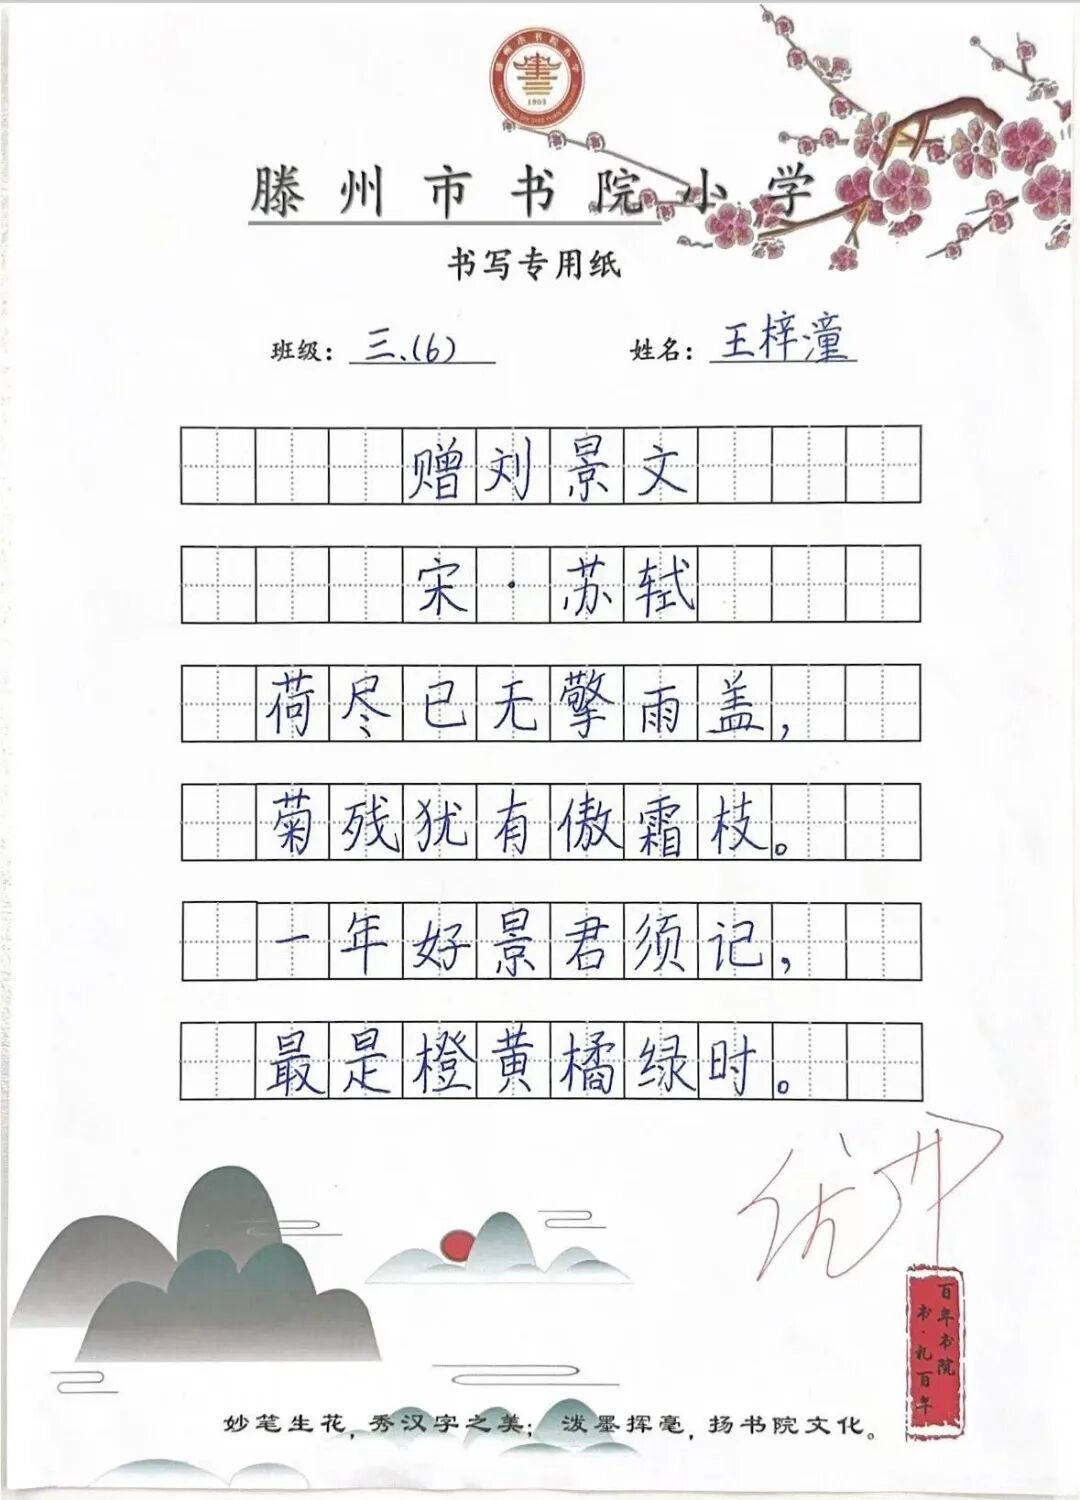 滕州市书院小学
1903
滕州市书院小学
书写专用纸
班级：三.(6) 姓名：王梓潼
赠刘景文
宋·苏轼
荷尽已无擎雨盖，
菊残犹有傲霜枝。
一年好景君须记，
最是橙黄橘绿时。
优
百年书院
书·礼百年
妙笔生花，秀汉字之美；泼墨挥毫，扬书院文化。